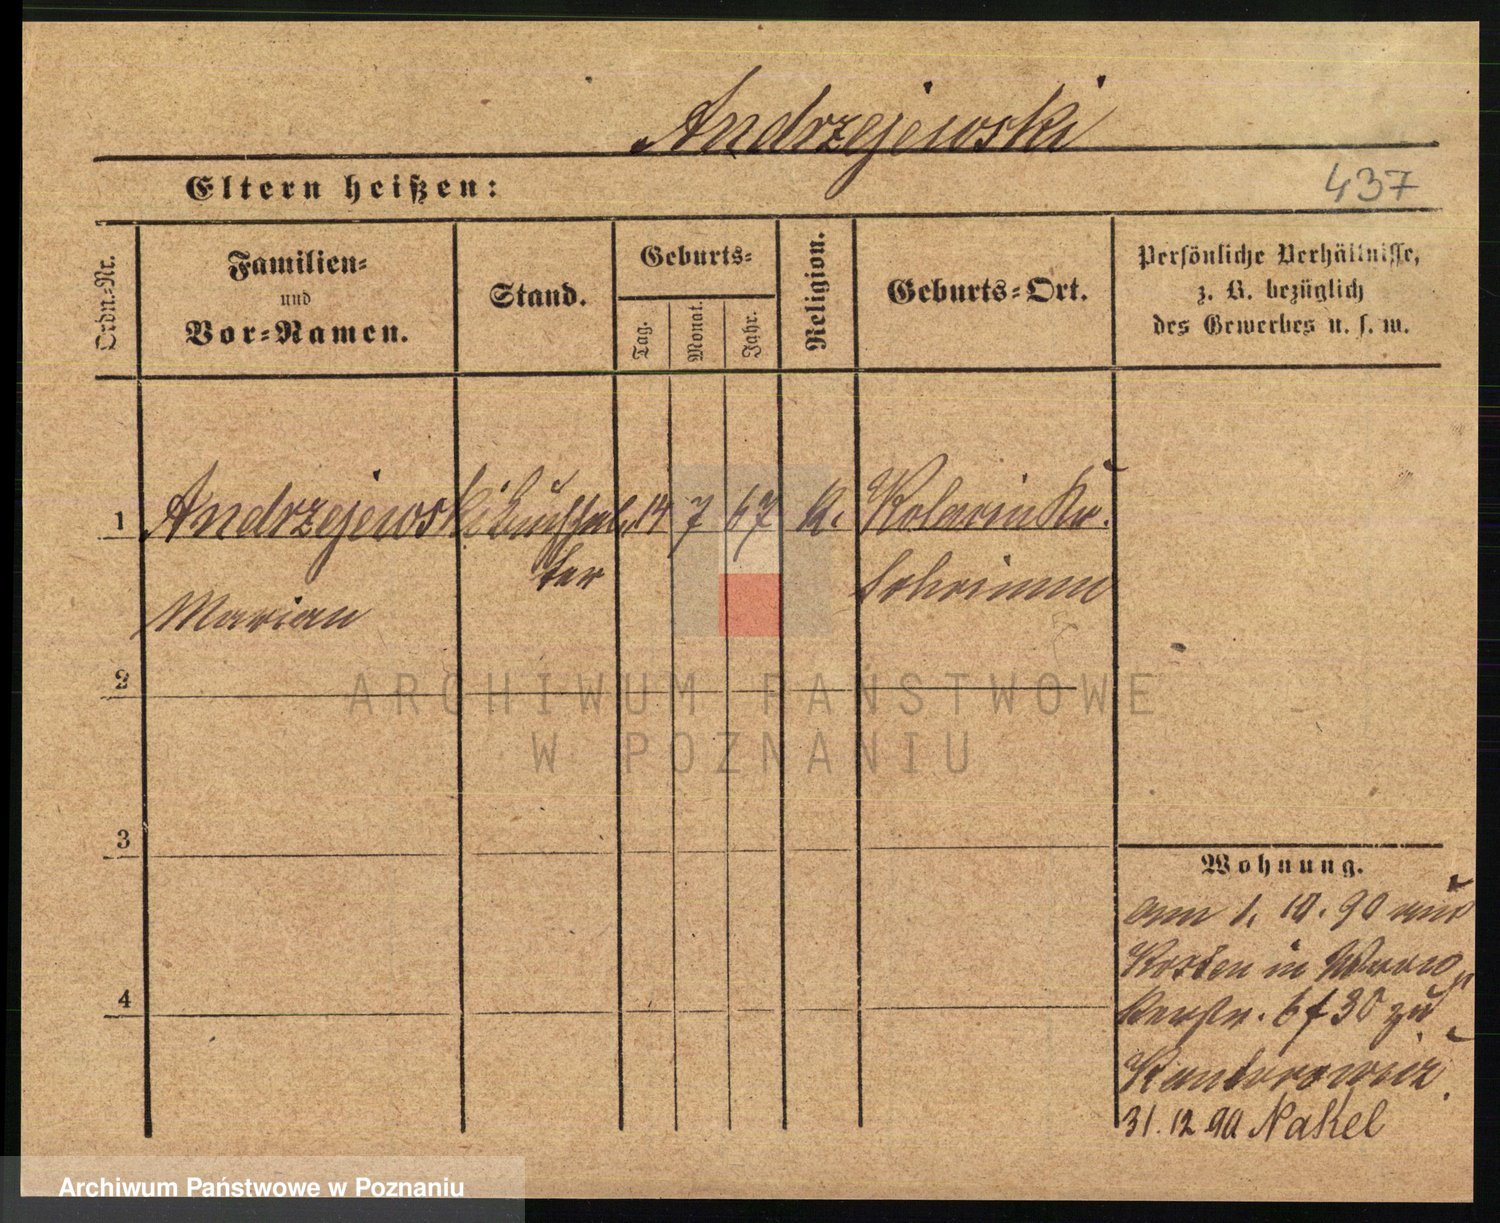 Andrzejewski
Eltern heißen:
437
Ordn.-Nr.
Familien-
und
Vor-Namen.
Stand.
Geburts-
Tag.
Monat.
Jahr.
Religion.
Geburts-Ort.
Persönliche Verhältnisse,
z. B. bezüglich
des Gewerbes u. s. w.
1 Andrzejewski Buchhal- 14 7 67 K.
ter
Schrimm
Marian
2
ARCHIWUM PAŃSTWOWE
W POZNANIU
3
Wohnung.
am 1. 10. 90 aus
Kosten in
6 f 30 zu
Kantorowicz
4
31. 12 90 Nakel
Archiwum Państwowe w Poznaniu